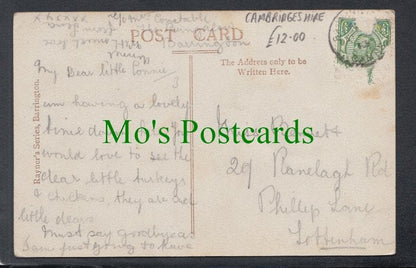 CAMBRIDGESHIRE
£12.00
POST CARD
Barrington
The Address only to be
Written Here.
Rayner's Series, Barrington.
My Dear little Connie
am having a lovely
time down here you
would love to see the
dear little turkeys
& chickens, they are
little dears
Must say goodbye as
I am just going to have
Mo's Postcards
29 Ranelagh Rd
Phillip Lane
Tottenham